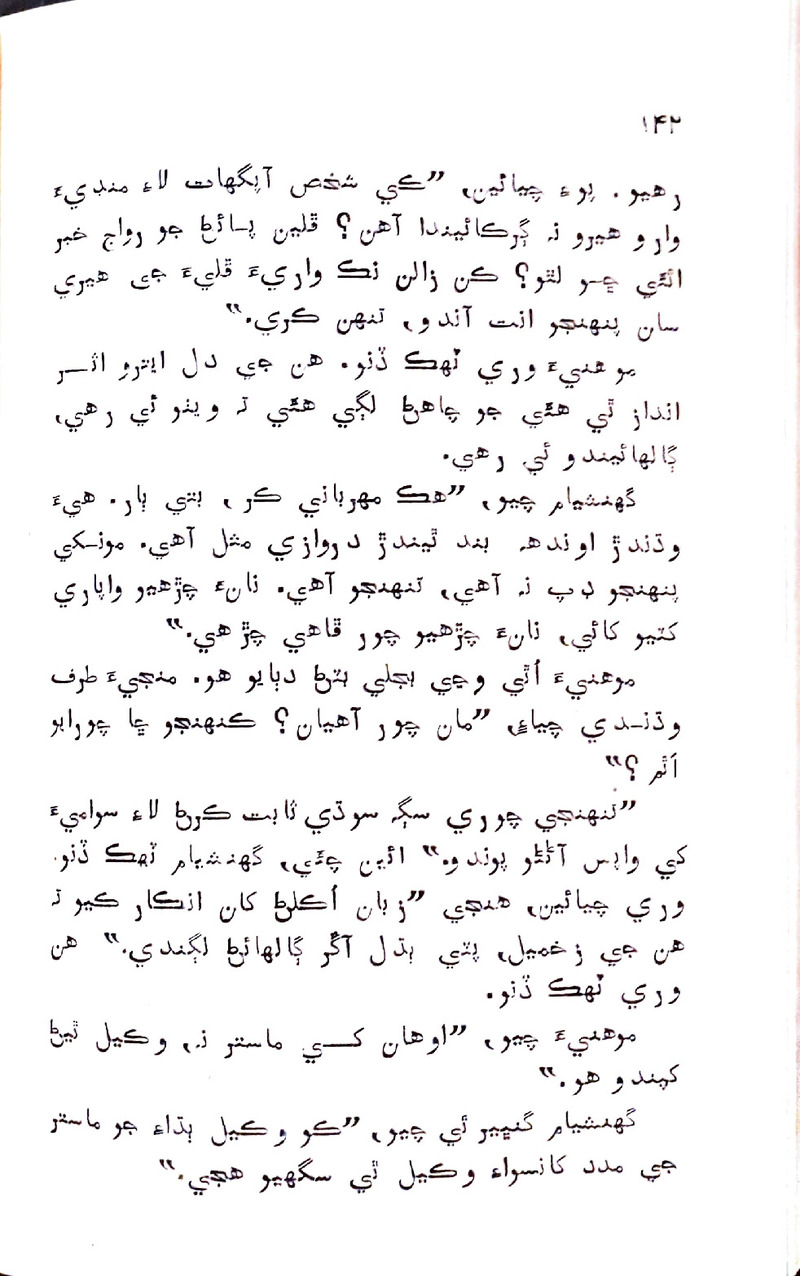 ۱۴۲
رهيو. پوءِ چيائين، ”ڪي شخص آپگهات لاءِ منڊيءَ
وارو هيرو نہ ڳرڪائيندا آهن؟ ڦلين پائڻ جو رواج خبر
اٿئي ڇو لٿو؟ ڪن زالن نڪ واريءَ ڦليءَ جي هيري
سان پنهنجو انت آندو، تنهن ڪري.“
موهنيءَ وري ٽهڪ ڏنو. هن جي دل ايترو اثر
انداز ٿي هئي جو چاهڻ لڳي هئي تہ ويٺو ئي رهي،
ڳالهائيندو ئي رهي.
گهنشيام چيو، ”هڪ مهرباني ڪر، بتي ٻار. هيءَ
وڌندڙ اوندهہ بند ٿيندڙ دروازي مثل آهي. مونکي
پنهنجو ڊپ نہ آهي، تنهنجو آهي. نانءُ چڙهيو واپاري
کٽيو کائي، نانءُ چڙهيو چور ڦاهي چڙهي.“
موهنيءَ اُٿي وڃي بجلي بٽڻ دٻايو هو. منجيءَ طرف
وڌندي چيائ، ”مان چور آهيان؟ ڪنهنجو ڇا چورايو
اَٿم؟“
”تنهنجي چوري سڳہ سوڌي ثابت ڪرڻ لاءِ سواميءَ
کي واپس آڻڻو پوندو.“ ائين چئي، گهنشيام ٽهڪ ڏنو.
وري چيائين، هنجي ”زبان اُڪلڻ کان انڪار ڪيو تہ
هن جي زخميل، پٽي ٻڌل آڱر ڳالهائڻ لڳندي.“ هن
وري ٽهڪ ڏنو.
موهنيءَ چيو، ”اوهان کي ماستر نہ، وڪيل ٿيڻ
کپندو هو.“
گهنشيام گنڀير ٿي چيو، ”ڪو وڪيل ٻڌاءِ جو ماستر
جي مدد کانسواءِ وڪيل ٿي سگهيو هجي.“